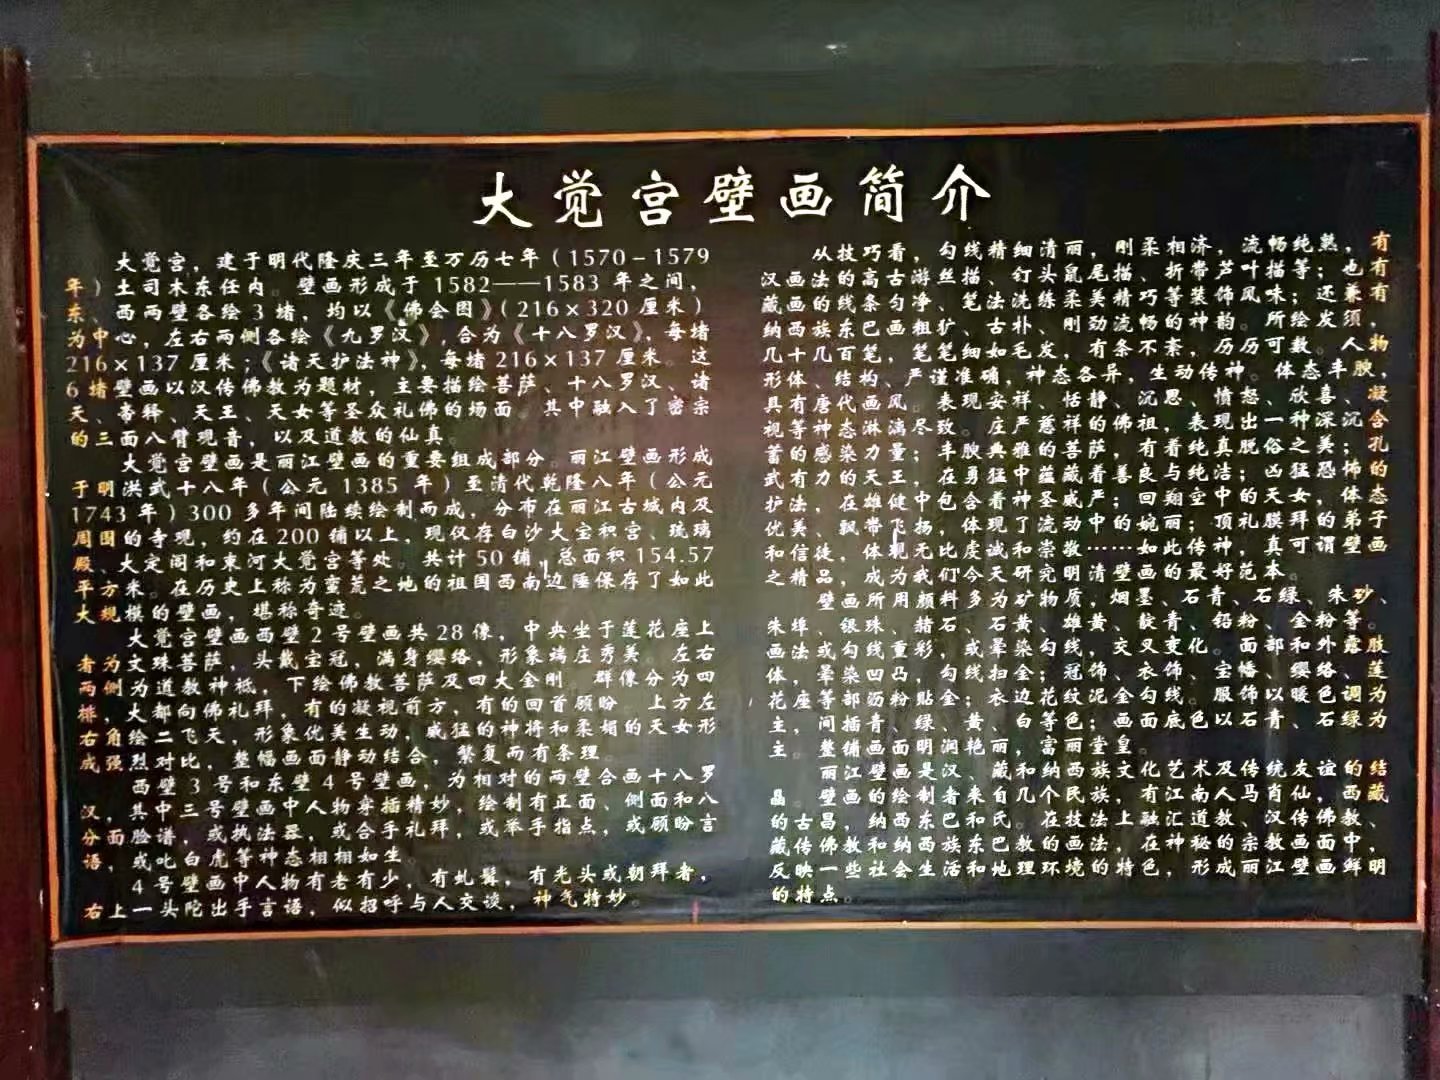 大觉宫壁画简介
大觉宫，建于明代隆庆三年至万历七年（1570-1579
年）土司木东任内。壁画形成于1582——1583年之间，
东、西两壁各绘3堵，均以《佛会图》（216×320厘米）
为中心，左右两侧各绘《九罗汉》,合为《十八罗汉》，每堵
216×137厘米；《诸天护法神》，每堵216×137厘米。这
6堵壁画以汉传佛教为题材，主要描绘菩萨、十八罗汉、诸
天、帝释、天王、天女等圣众礼佛的场面。其中融入了密宗
的三面八臂观音，以及道教的仙真。
大觉宫壁画是丽江壁画的重要组成部分。丽江壁画形成
于明洪武十八年（公元1385年）至清代乾隆八年（公元
1743年）300多年间陆续绘制而成，分布在丽江古城内及
周围的寺观，约在200铺以上，现仅存白沙大宝积宫、琉璃
殿、大定阁和束河大觉宫等处。共计50铺，总面积154.57
平方米。在历史上称为蛮荒之地的祖国西南边陲保存了如此
大规模的壁画，堪称奇迹。
大觉宫壁画西壁2号壁画共28像，中央坐于莲花座上
者为文殊菩萨，头戴宝冠，满身缨络，形象端庄秀美。左右
两侧为道教神祇，下绘佛教菩萨及四大金刚。群像分为四
排，大都向佛礼拜，有的凝视前方，有的回首顾盼。上方左
右角绘二飞天，形象优美生动，威猛的神将和柔媚的天女形
成强烈对比，整幅画面静动结合，繁复而有条理。
西壁3号和东壁4号壁画，为相对的两壁合画十八罗
汉，其中三号壁画中人物穿插精妙，绘制有正面、侧面和八
分面脸谱，或执法器，或合手礼拜，或举手指点，或顾盼言
语，或叱白虎等神态栩栩如生。
4号壁画中人物有老有少，有虬髯，有光头或朝拜者，
右上一头陀出手言语，似招呼与人交谈，神气特妙。
从技巧看，勾线精细清丽，刚柔相济，流畅纯熟，有
汉画法的高古游丝描、钉头鼠尾描、折带芦叶描等；也有
藏画的线条匀净、笔法洗练柔美精巧等装饰风味；还兼有
纳西族东巴画粗犷、古朴、刚劲流畅的神韵。所绘发须，
几十几百笔，笔笔细如毛发，有条不紊，历历可数。人物
形体、结构、严谨准确，神态各异，生动传神。体态丰腴，
具有唐代画风。表现安祥、恬静、沉思、愤怒、欣喜、凝
视等神态淋漓尽致。庄严慈祥的佛祖，表现出一种深沉含
蓄的感染力量；丰腴典雅的菩萨，有着纯真脱俗之美；孔
武有力的天王，在勇猛中蕴藏着善良与纯洁；凶猛恐怖的
护法，在雄健中包含着神圣威严；回翔空中的天女，体态
优美、飘带飞扬，体现了流动中的婉丽；顶礼膜拜的弟子
和信徒，体现无比虔诚和崇敬……如此传神，真可谓壁画
之精品，成为我们今天研究明清壁画的最好范本。
壁画所用颜料多为矿物质，烟墨、石青、石绿、朱砂、
朱埠、银珠、赭石、石黄、雄黄、靛青、铅粉、金粉等。
画法或勾线重彩，或晕染勾线，交叉变化。面部和外露肢
体，晕染凹凸，勾线扫金；冠饰、衣饰、宝幡、缨络、莲
花座等部沥粉贴金；衣边花纹泥金勾线。服饰以暖色调为
主，间插青、绿、黄、白等色；画面底色以石青、石绿为
主。整铺画面明润艳丽，富丽堂皇。
丽江壁画是汉、藏和纳西族文化艺术及传统友谊的结
晶。壁画的绘制者来自几个民族，有江南人马肖仙，西藏
的古昌，纳西东巴和氏。在技法上融汇道教、汉传佛教、
藏传佛教和纳西族东巴教的画法，在神秘的宗教画面中，
反映一些社会生活和地理环境的特色，形成丽江壁画鲜明
的特点。